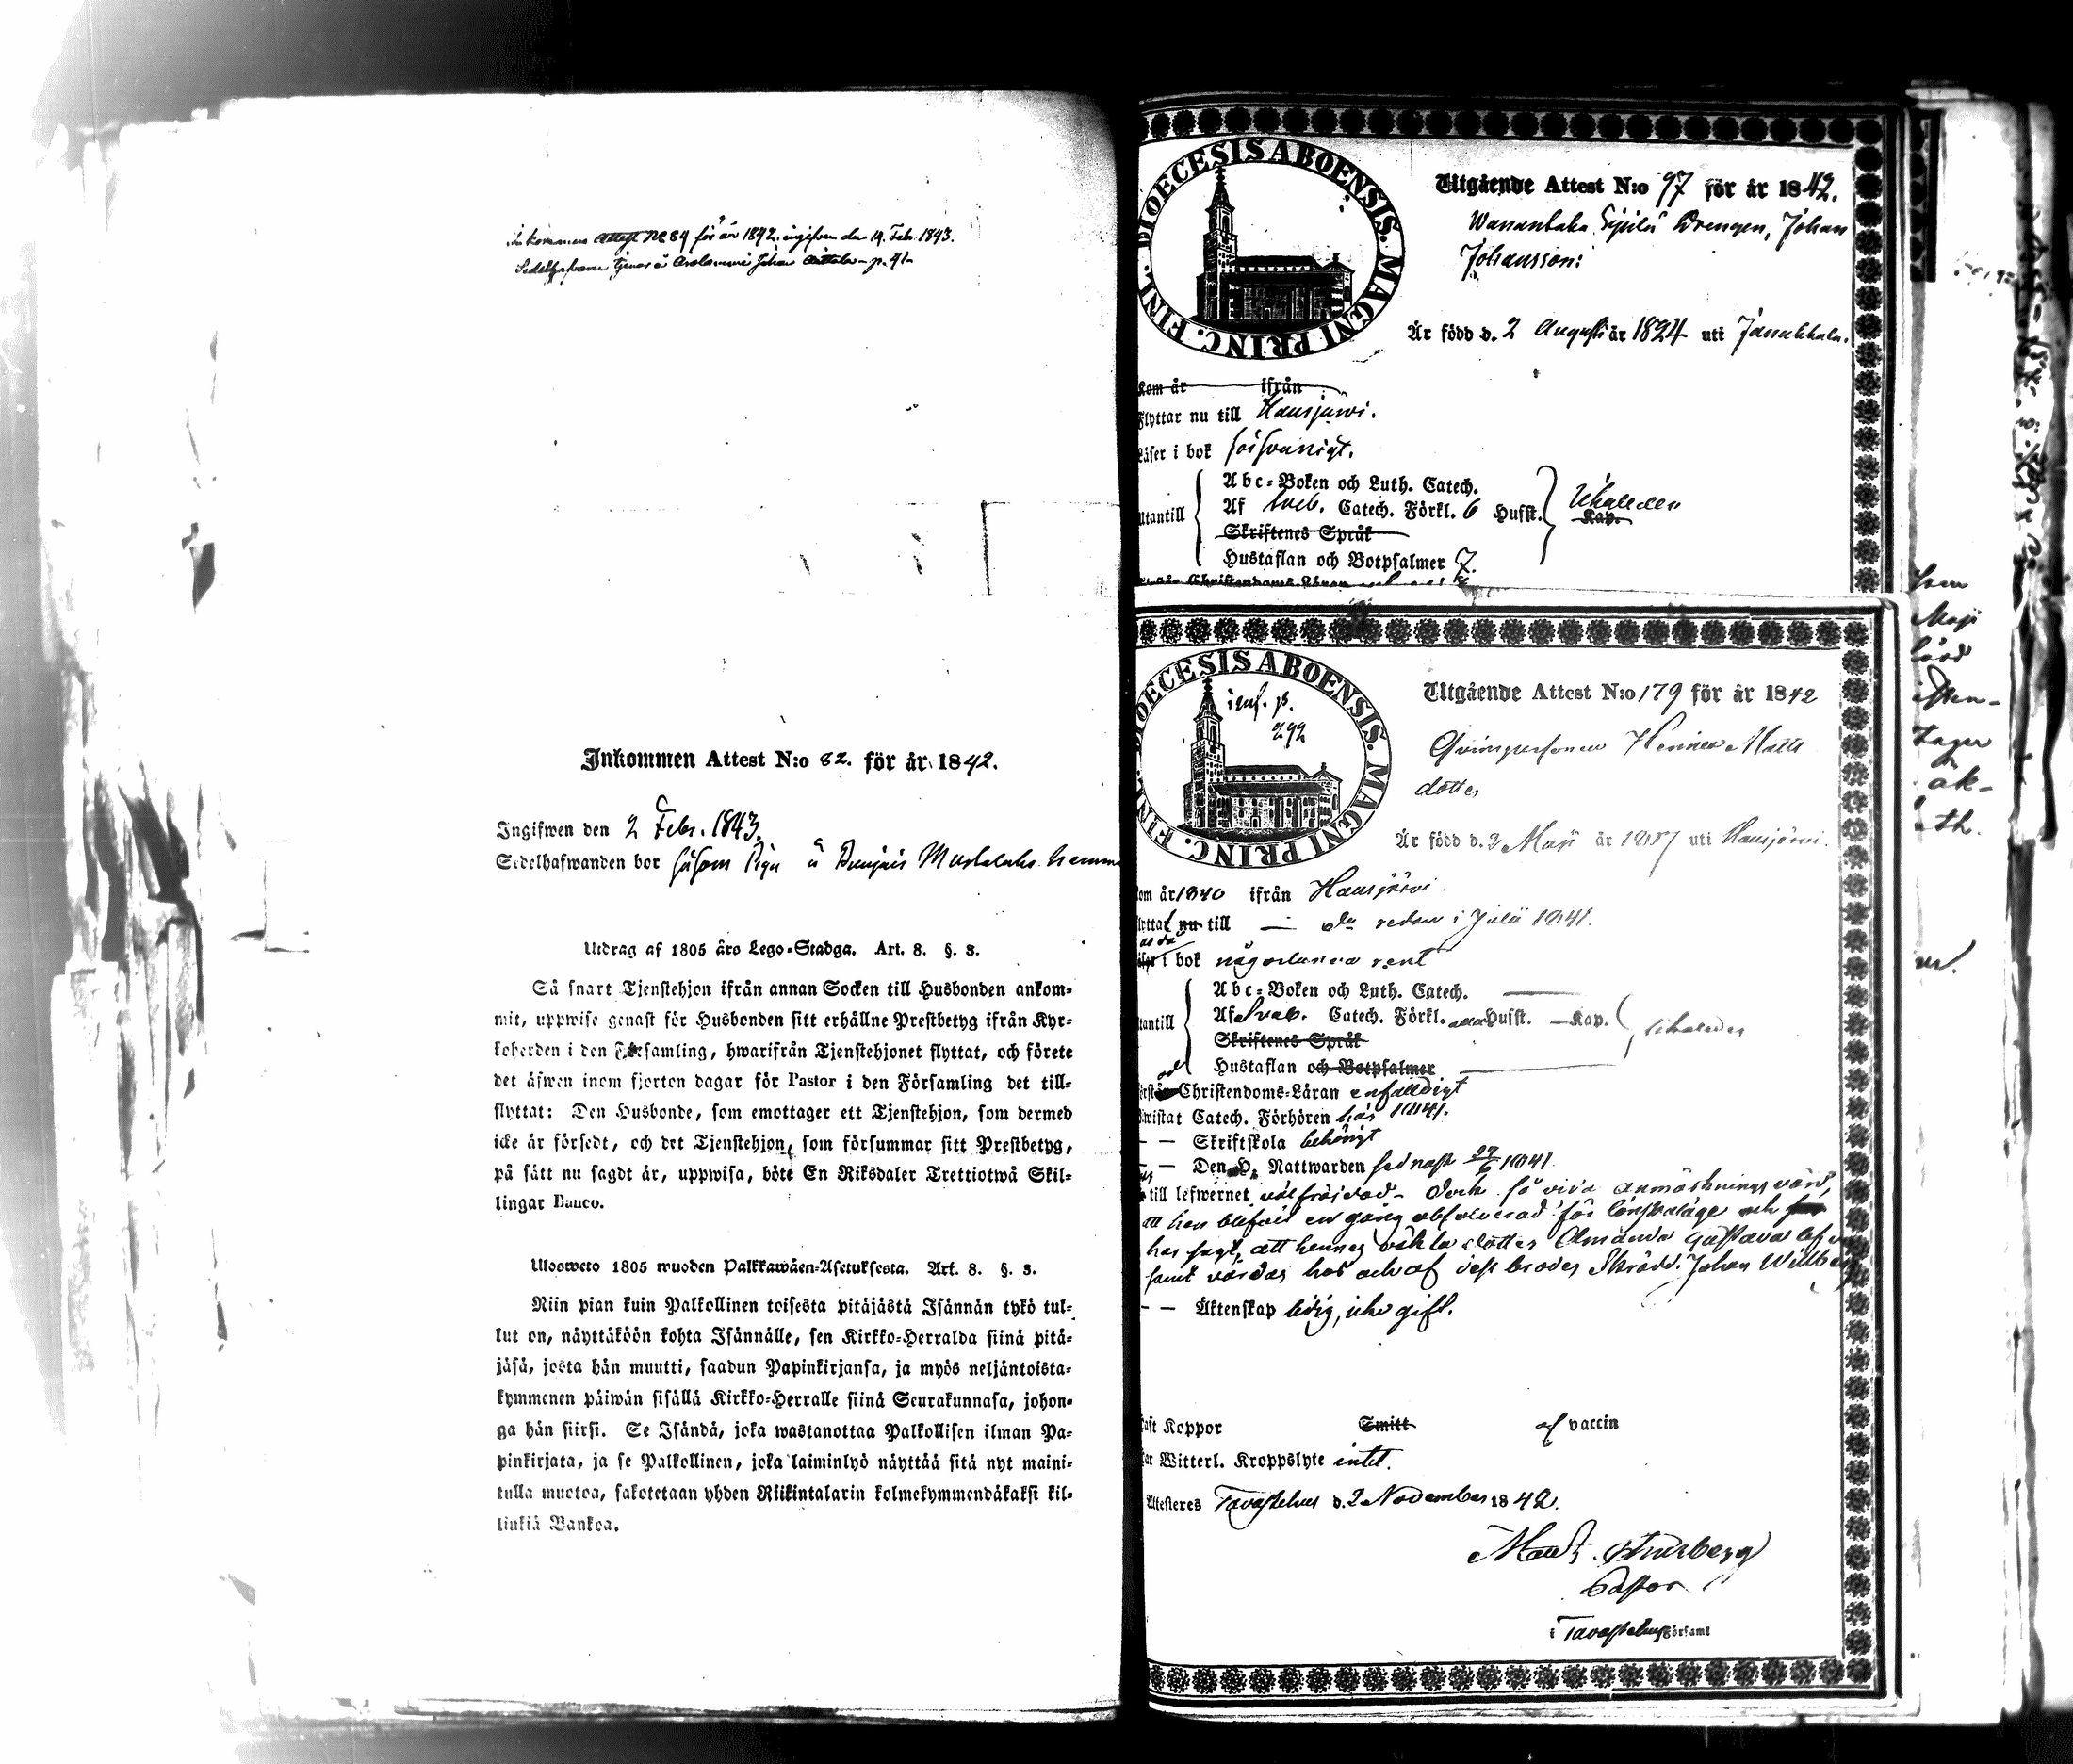 Inkommen Attest No 84 för år 1842. ingifven den 14. Febr. 1843.
Sedelhafvaren tjenar å Johan p. 41
Inkommen Attest N:o 82. för år 1842.
Ingifwen den 2 Febr. 1843.
Sedelhafwanden bor såsom Piga å
Utdrag af 1805 års Lego-Stadga. Art. 8. §. 3.
Så snart Tjenstehjon ifrån annan Socken till Husbonden ankom-
mit, uppwise genast för Husbonden sitt erhållne Prestbetyg ifrån Kyr-
koherden i den Församling, hwarifrån Tjenstehjonet flyttat, och förete
det äfwen inom fjorton dagar för Pastor i den Församling det till-
flyttat: Den Husbonde, som emottager ett Tjenstehjon, som dermed
icke är försedt, och det Tjenstehjon, som försummar sitt Prestbetyg,
på sätt nu sagdt är, uppwisa, böte En Riksdaler Trettiotwå Skil-
lingar Banco.
Ulosweto 1805 wuoden Palkkawäen-Asetuksesta. Art. 8. §. 3.
Niin pian kuin Palkollinen toisesta pitäjästä Isännän tykö tul-
lut on, näyttäköön kohta Isännälle, sen Kirkko-Herralda siinä pitä-
jäsä, josta hän muutti, saadun Papinkirjansa, ja myös neljäntoista-
kymmenen päiwän sisällä Kirkko-Herralle siinä Seurakunnasa, johon-
ga hän siirsi. Se Isändä, joka wastanottaa Palkollisen ilman Pa-
pinkirjata, ja se Palkollinen, joka laiminlyö näyttää sitä nyt maini-
tulla muotoa, sakotetaan yhden Riikintalarin kolmekymmendäkaksi kil-
linkiä Bankoa.
DIOECESIS ABOENSIS. MAGNI PRINC. FINL.
Utgående Attest N:o 97 för år 1842.
Drengen, Johan
Johansson:
Är född d. 2 Augusti år 1824 uti Janakkala.
Kom år ifrån
Flyttar nu till Hausjärvi.
Läser i bok försvarligt.
Utantill
Abc-Boken och Luth. Catech.
Af Sveb. Catech. Förkl. 6 Hufst. Kap.
Skriftenes Språk
Hustaflan och Botpsalmer 7.
DIOECESIS ABOENSIS. MAGNI PRINC. FIN
inf. p.
292
Utgående Attest N:o 179 för år 1842
Qvinspersonen Matts
dotter
Är född d. 2 Maji år uti Hausjärvi.
om år 1840 ifrån Hausjärvi.
lyttat nu till — do redan i Julii 1841.
i bok någorlunda rent
tantill
Abc-Boken och Luth. Catech.
Af Sveb. Catech. Förkl. Hufst. — Kap.
Skriftenes Språk
Hustaflan och Botpsalmer
Christendoms-Läran enfaldigt
wistat Catech. Förhören här 1841.
— — Skriftskola behörigt
— — Den H. Nattwarden sednast 27/6 1841
till lefwernet välfräjdad – dock så vida anmärkning värd,
att hon blifvit en gång absolverad för lönskaläge och
har sagt, att hennes oäkta dotter Amanda Gustava
samt vårdas hos och af dess broder Skrädd. Johan
— — Äktenskap ledig, icke gift.
aft Koppor Smitt af vaccin
ar Witterl. Kroppslyte intet.
Attesteres Tavastehus d. 2 November 1842.
Pastor
i Tavastehus Församl